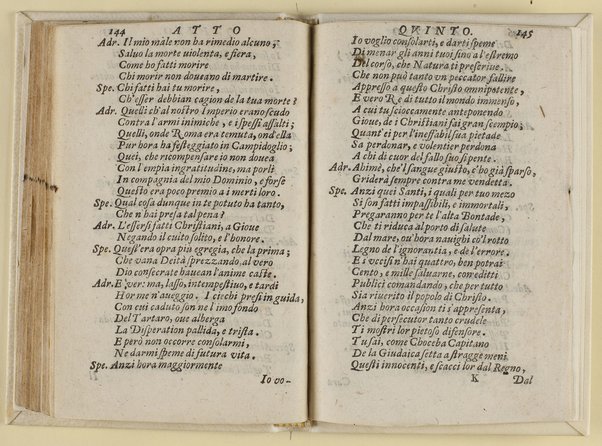 144 ATTO
Adr. Il mio male non ha rimedio alcuno;
Saluo la morte uiolenta, e fiera,
Come ho fatti morire
Chi morir non doueano di martire.
Spe. Chi fatti hai tu morire,
Ch'esser debbian cagion de la tua morte?
Adr. Quelli ch'al nostro Imperio erano scudo
Contra l'armi inimiche, e i spessi assalti;
Quelli, onde Roma era temuta, ond'ella
Pur hora ha festeggiato in Campidoglio;
Quei, che ricompensare io non douea
Con l'empia ingratitudine, ma porli
In compagnia del mio Dominio, e forse
Questo era poco premio a i merti loro.
Spe. Qual cosa dunque in te potuto ha tanto,
Che n'hai presa tal pena?
Adr. L'essersi fatti Christiani, a Gioue
Negando il culto solito, e l'honore.
Spe. Quest'era opra piu egregia, che la prima;
Che vana Deità sprezzando, al vero
Dio consecrate hauean l'anime caste.
Adr. E' ver: ma, lasso, intempestiuo, e tardi
Hor me n'aueggio. I ciechi presi in guida,
Con cui caduto son ne l'imo fondo
Del Tartaro, oue alberga
La Disperation pallida, e trista.
E però non occorre consolarmi,
Ne darmi speme di futura vita.
Spe. Anzi hora maggiormente
Io vo-
QVINTO. 145
Io voglio consolarti, e darti speme
Di menar gli anni tuoi sino a l'estremo
Del corso, che Natura ti prescriue.
Che non può tanto vn peccator fallire
Appresso a questo Christo omnipotente,
E vero Re di tutto il mondo immenso,
A cui tu scioccamente anteponendo
Gioue, de i Christiani fai gran scempio;
Quant'ei per l'ineffabil sua pietade
Sa perdonar, e volentier perdona
A chi di cuor del fallo suo si pente.
Adr. Ahimè, che'l sangue giusto, c'ho già sparso,
Griderà sempre contra me vendetta.
Spe. Anzi quei Santi, i quali per tuo mezo
Si son fatti impassibili, e immortali,
Pregaranno per te l'alta Bontade,
Che ti riduca al porto di salute
Dal mare, ou'hora nauighi co'l rotto
Legno de l'ignorantia, e de l'errore.
E i vccisi n'hai quattro, ben potrai
Cento, e mille saluarne, con editti
Publici comandando, che per tutto
Sia riuerito il popolo di Christo.
Anzi hora occasion ti s'appresenta,
Che di persecutor tanto crudele
Ti mostri lor pietoso difensore.
Tu sai, come Choceba Capitano
De la Giudaica setta a stragge meni
Questi innocenti, e scacci lor dal Regno,
K Dal